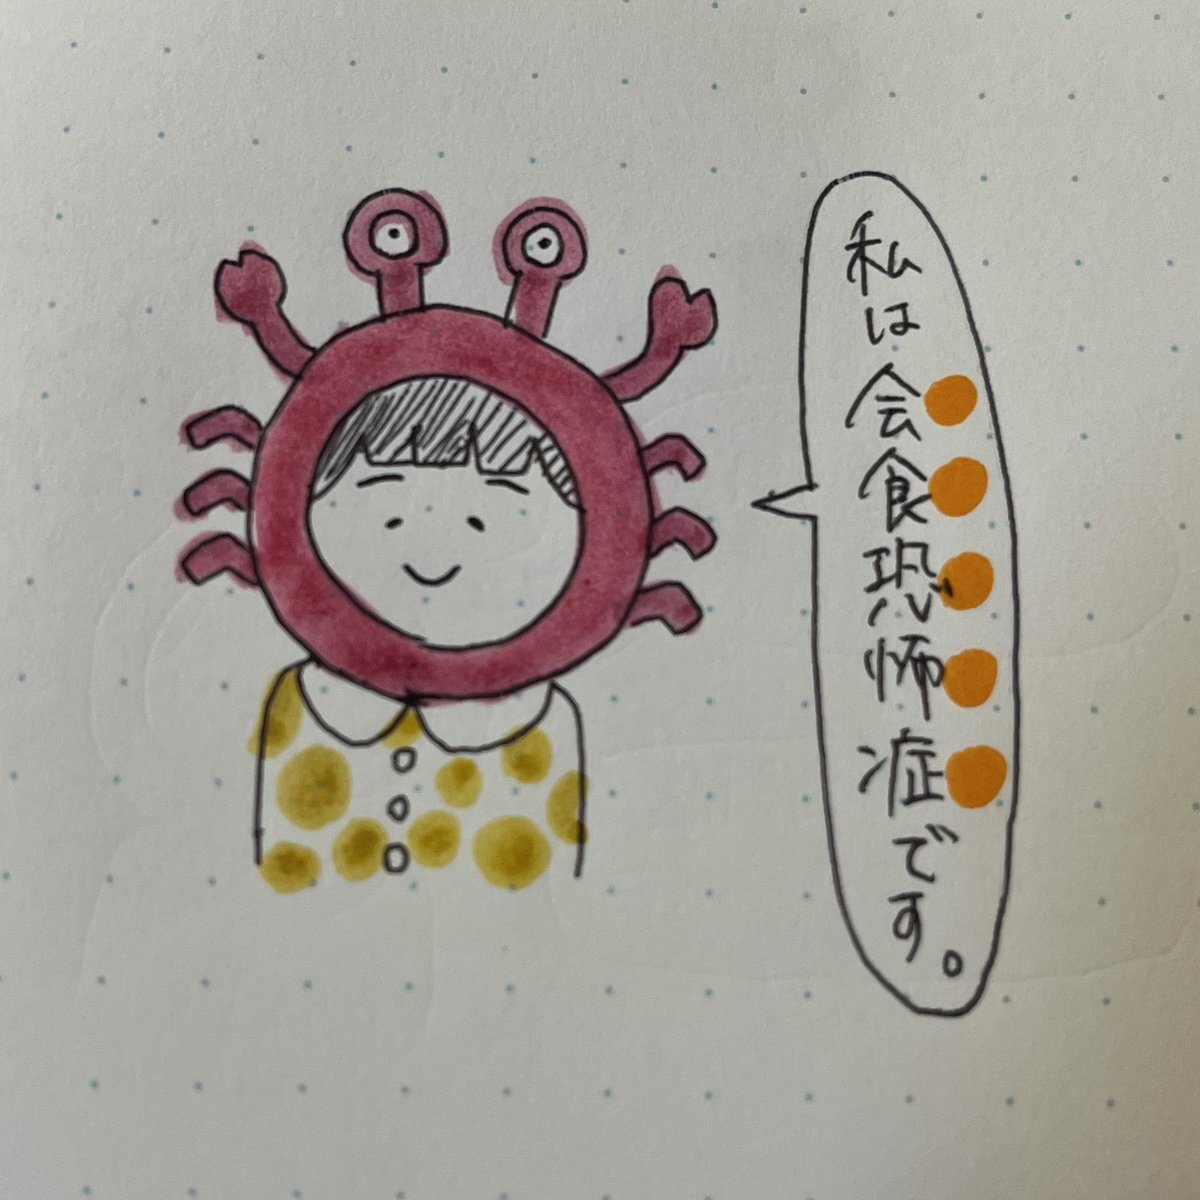 私は会食恐怖症です。